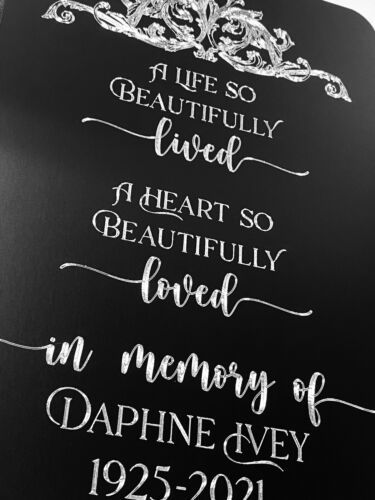 A LIFE SO
BEAUTIFULLY
lived
A HEART SO
BEAUTIFULLY
loved
in memory of
DAPHNE IVEY
1925-2021